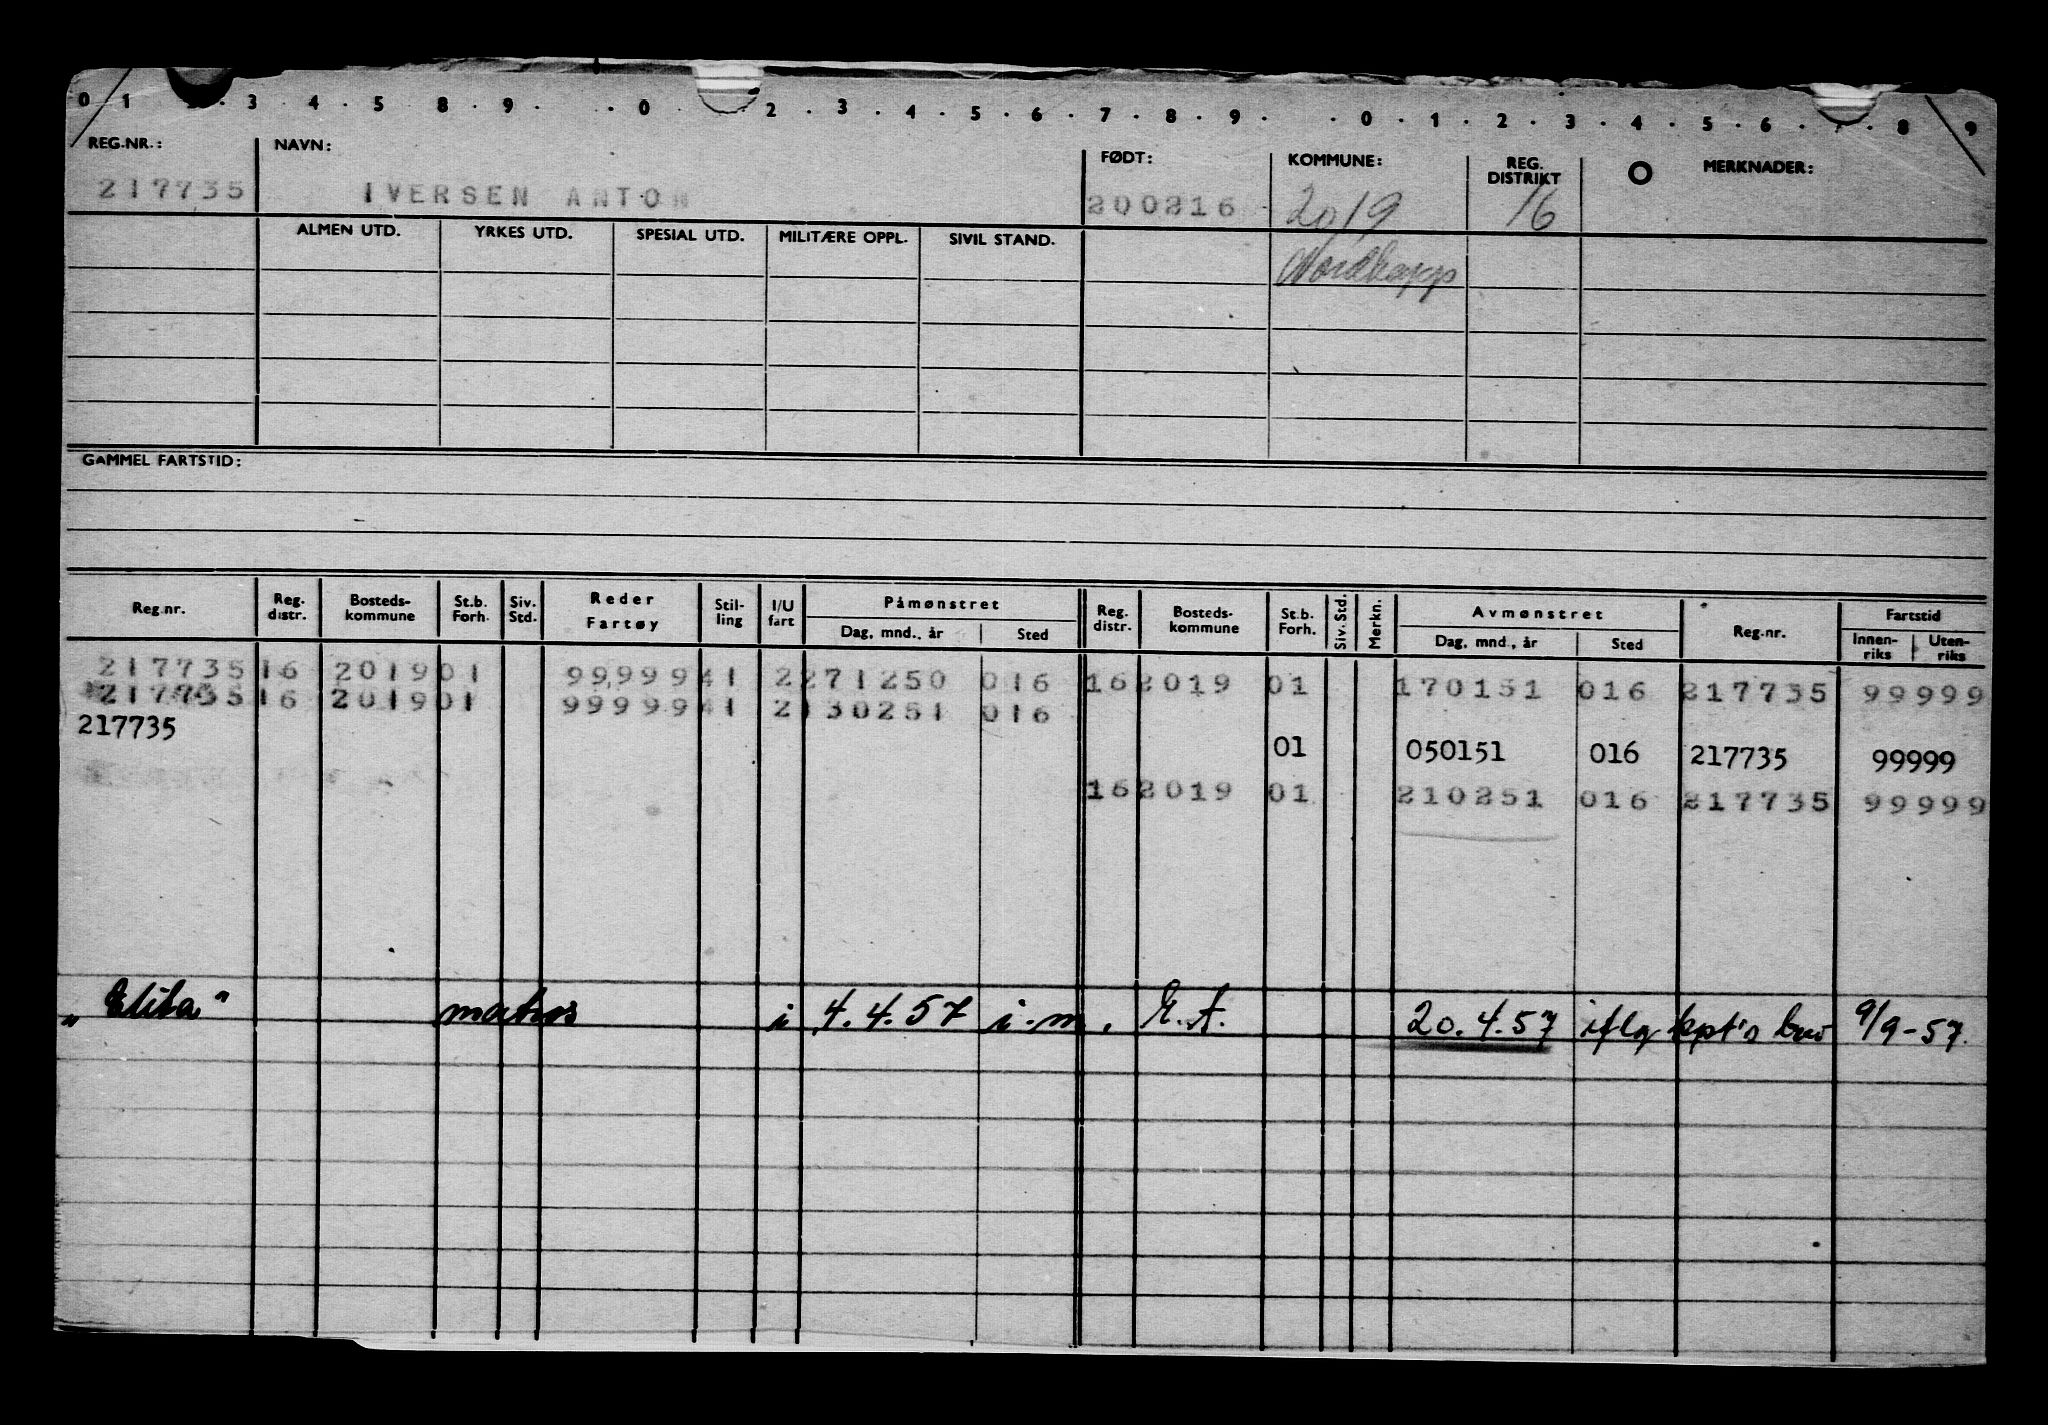 0 1 . 3 . 4 . 5 8 . 9 . . 0 . 2 . 3 . 4 . 5 . 6 . 7 . 8 . 9 . . 0 . 1 . 2 . 3 . 4 . 5 . 6 . 7 . 8 9
REG.NR.: NAVN: FØDT: KOMMUNE: REG. DISTRIKT MERKNADER:
217735 IVERSEN ANTON 200216 2019 16
ALMEN UTD. YRKES UTD. SPESIAL UTD. MILITÆRE OPPL. SIVIL STAND.
Nordkapp
GAMMEL FARTSTID:
Reg.nr. Reg. distr. Bosteds-kommune St.b. Forh. Siv. Std. Reder Fartøy Stil-ling I/U fart Påmønstret Reg. distr. Bosteds-kommune St.b. Forh. Siv. Std. Merkn. Avmønstret Reg.nr. Fartstid
Dag, mnd., år Sted Dag, mnd., år Sted Innen-riks Uten-riks
217735 16 2019 01 99,999 41 2 271250 016 16 2019 01 170151 016 217735 99999
217735 16 2019 01 99999 41 2 130251 016
217735
01 050151 016 217735 99999
16 2019 01 210251 016 217735 99999
"Elita" matros i 4.4.57 i.m. 20.4.57 iflg kpt's brev 9/9-57.